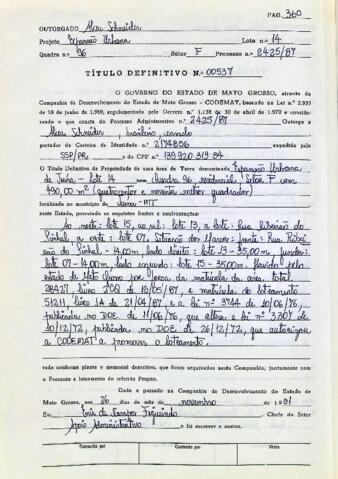 PAG. 360
OUTORGADO Alceu Schneider
Projeto Expansão Urbana Lote n.º 14
Quadra n.º 96 Setor F Processo n.º 2425/87
TÍTULO DEFINITIVO N.º 00537
O GOVERNO DO ESTADO DE MATO GROSSO, através da
Companhia de Desenvolvimento do Estado de Mato Grosso - CODEMAT, baseado na Lei n.º 2.933
de 10 de junho de 1.969, regulamentada pelo Decreto n.º 1.138 de 30 de abril de 1.970 e considerando
o que consta do Processo Administrativo n.º 2425/87 Outorga a
Alceu Schneider, brasileiro, casado
portador da Carteira de Identidade n.º 2174856 expedida pela
SSP/PR e do CPF n.º 139 920 319 34
O Título Definitivo de Propriedade de uma área de Terra denominada Expansão Urbana
de Juína - Lote 14 Quadra 96 residencial, Setor F com
490,00 m² (quatrocentos e noventa metros quadrados)
localizada no município de Juína - MT
neste Estado, possuindo os seguintes limites e confrontações:
Ao norte: lote 15, ao sul: lote 13, a leste: Rua Ribeirão do
Pinhal, a oeste: lote 07. Situação dos Marcos: frente: Rua Ribei
rão do Pinhal - 14,00m lado direito: lote 13 - 35,00m, fundos:
lote 07 - 14,00m, lado esquerdo: lote 15 - 35,00m. Havido pelo
Estado de Mato Grosso por força da matrícula da área total
28427 livro 2CQ de 18/05/87, e matrícula do loteamento
51211, livro 1A de 21/04/87, e a lei nº 3744 de 10/06/76,
publicada no DOE de 11/06/76, que altera a lei nº 3307 de
20/12/72, publicada no DOE de 26/12/72, que autorizou
a CODEMAT a promover o loteamento.
tudo conforme planta e memorial descritivo, que foram arquivados nesta Companhia, juntamente com
o Processo e loteamento do referido Projeto.
Dado e passado na Companhia de Desenvolvimento do Estado de
Mato Grosso, aos 26 dias do mês de novembro de 1.991
Eu, de Campos Figueiredo Chefe do Setor
Apoio Administrativo o fiz escrever e assino.
Transcrito por Conferido por Visto